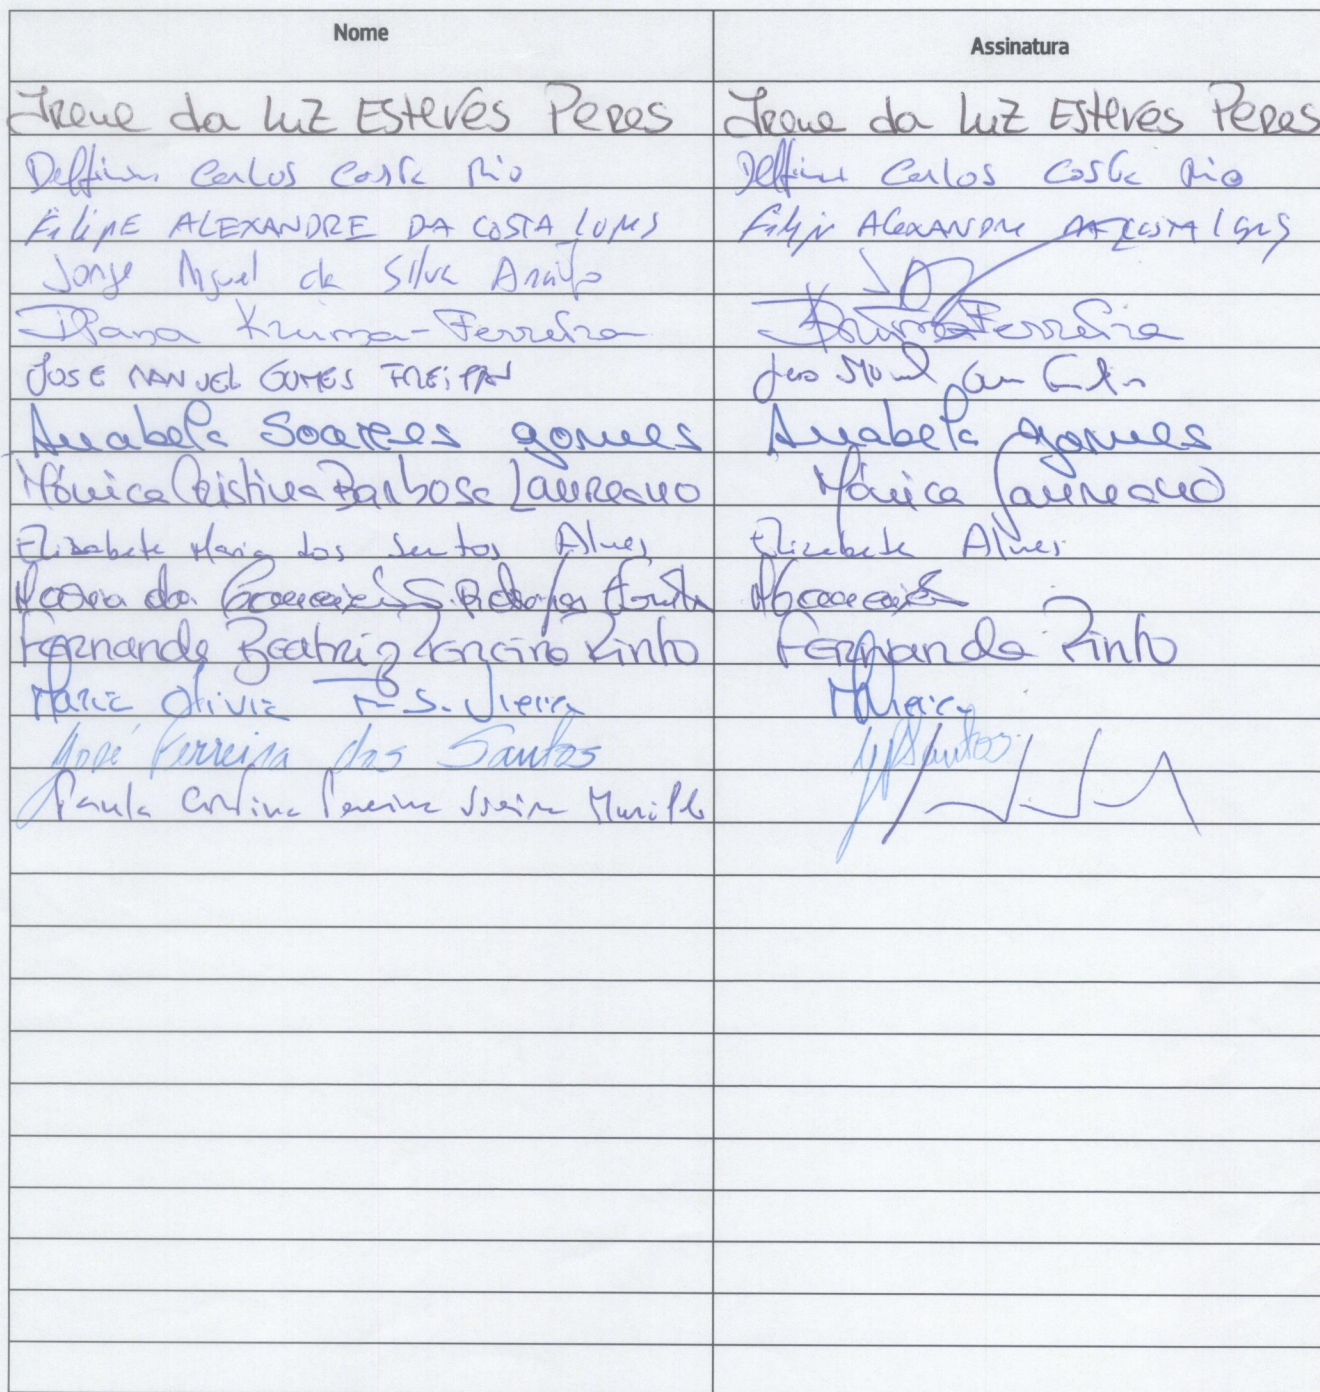 Nome Assinatura
Irene da Luz Esteves Peres Irene da Luz Esteves Peres
Delfim Carlos Costa Rio Delfim Carlos Costa Rio
Filipe ALEXANDRE DA COSTA LOPES Filipe ALEXANDRE DA COSTA LOPES
Jorge Miguel da Silva Araújo
Diana Kruma-Ferreira Kruma Ferreira
JOSE MANUEL GOMES
Anabela Soares gomes Anabela gomes
Mónica Cristina Barbosa Laureano Mónica Laureano
Elizabete Maria dos Santos Alves Elizabete Alves
Maria da
Fernanda Beatriz Pinto Fernanda Pinto
Maria Olivia F. S. Vieira MVieira
José Ferreira dos Santos Santos
Paula Cristina Pereira Vieira